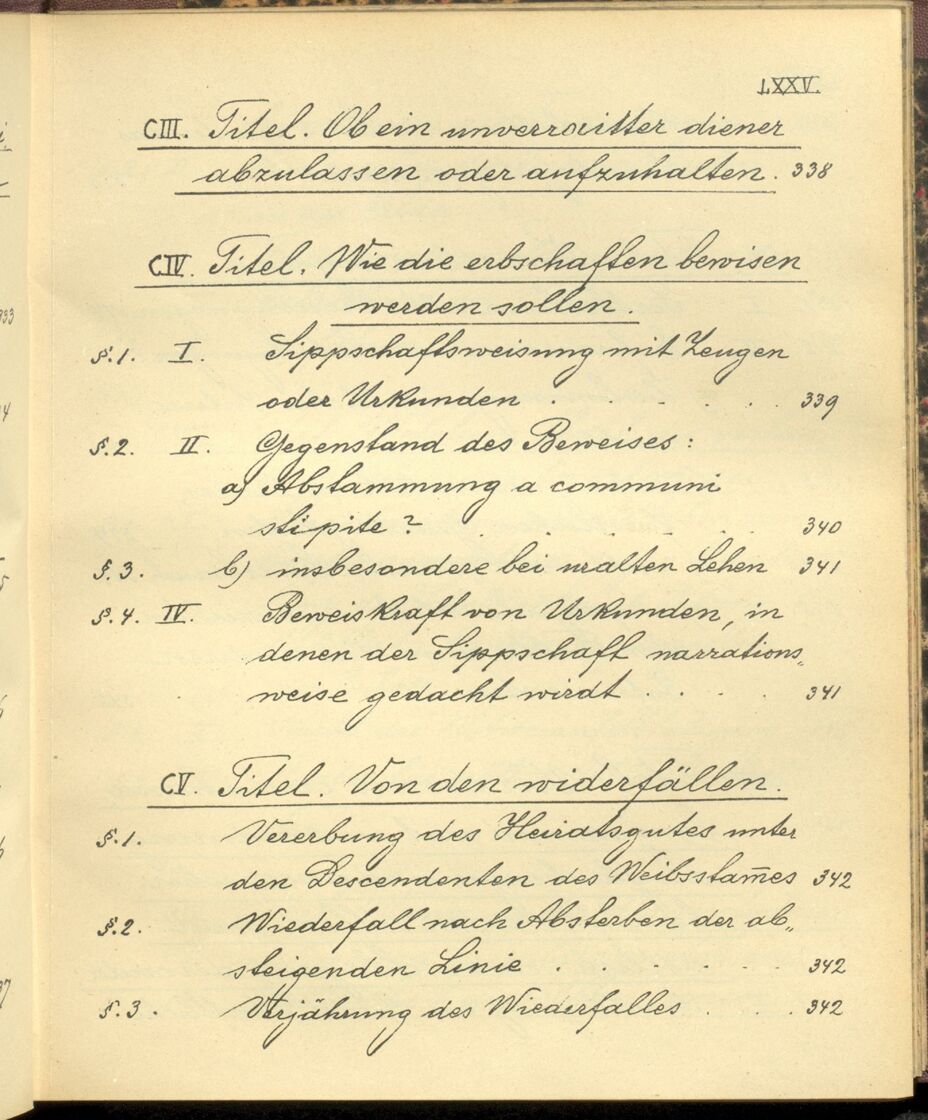 LXXV.
CIII. Titel. Ob ein unverraitter diener
abzulassen oder aufzuhalten. 338
CIV. Titel. Wie die erbschaften bewisen
werden sollen.
§.1. I. Sippschaftsweisung mit Zeugen
oder Urkunden . . . . . 339
§.2. II. Gegenstand des Beweises:
a) Abstammung a communi
stipite? . . . . . 340
§.3. b) insbesondere bei uralten Lehen 341
§.4. IV. Beweiskraft von Urkunden, in
denen der Sippschaft narrations„
weise gedacht wirdt . . . . 341
CV. Titel. Von den widerfällen.
§.1. Vererbung des Heiratsgutes unter
den Descendenten des Weibsstam̅es 342
§.2. Wiederfall nach Absterben der ab„
steigenden Linie . . . . . 342
§.3. Verjährung des Wiederfalles . . . 342
i.
333
4
5
6
6
37